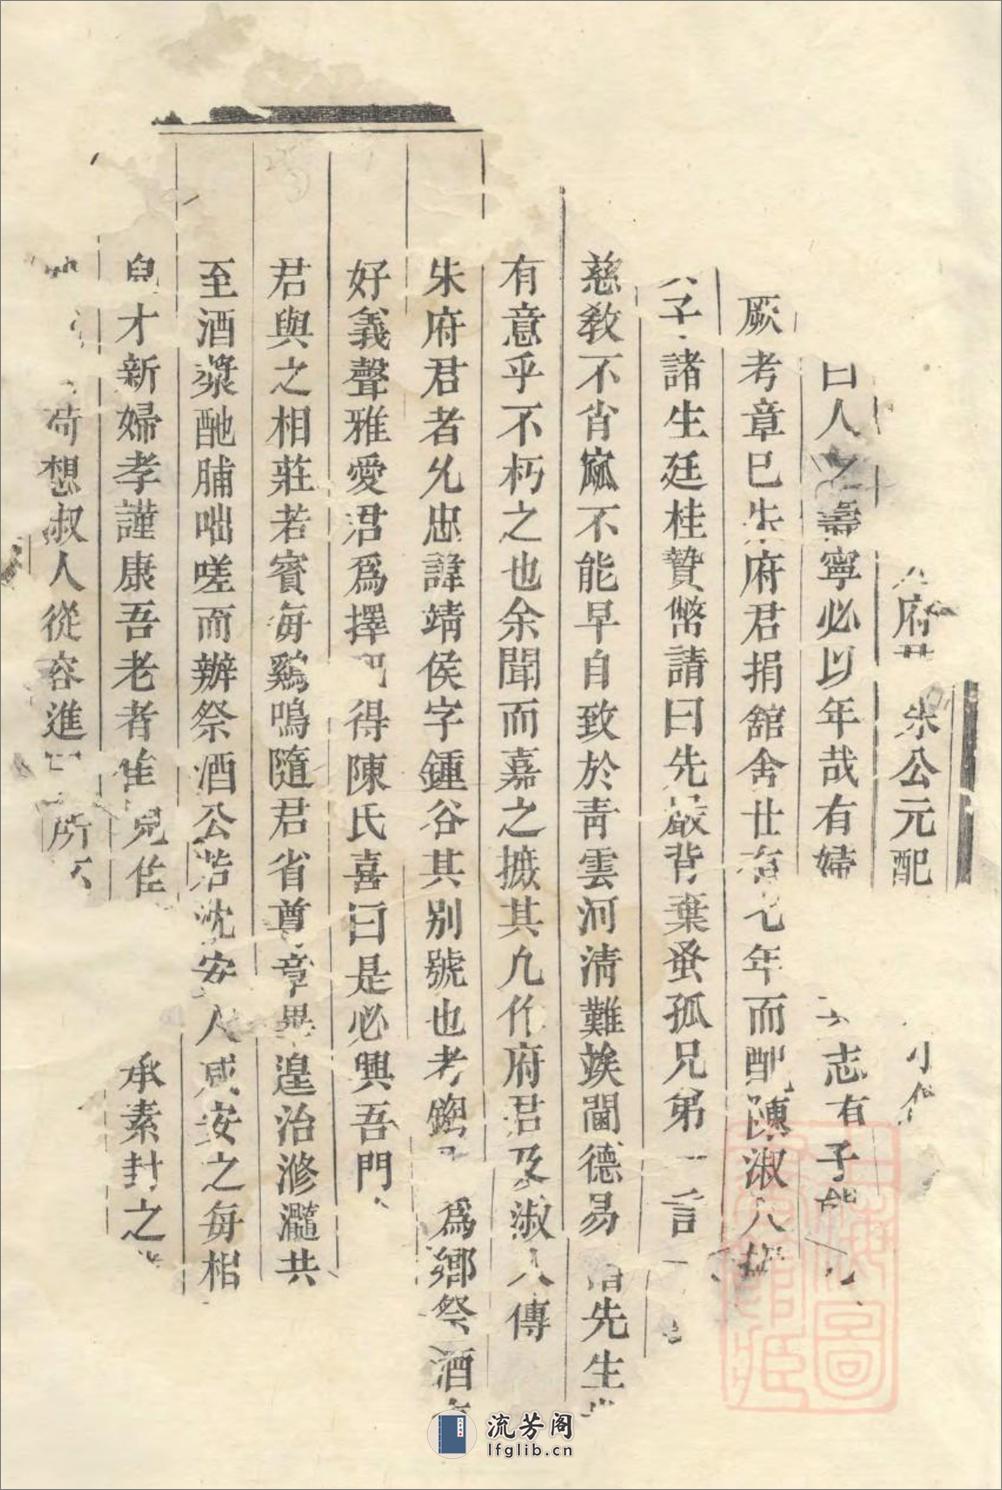 府君 朱公元配
曰人之壽寧必以年哉有婦 志有子能
厥考章巳朱府君捐舘舍廿有七年而配陳淑人
子諸生廷桂贄幣請曰先嚴背棄蚤孤兄弟 言
慈敎不肖寡不能早自致於靑雲河淸難竢閫德易 先生
有意乎不朽之也余聞而嘉之摭其凡作府君及淑人傳
朱府君者允忠諱靖侯字鍾谷其別號也考 爲鄉祭酒
好義聲雅愛君爲擇 得陳氏喜曰是必興吾門
君與之相莊若賓每鷄鳴隨君省尊章畢遑治滫瀡共
至酒漿酏脯咄嗟而辦祭酒公浩沈安人咸安之每相
兒才新婦孝謹康吾老者隹兒隹 承素封之
荷想叔人從容進 所
上海圖書館
流芳阁
lfglib.cn